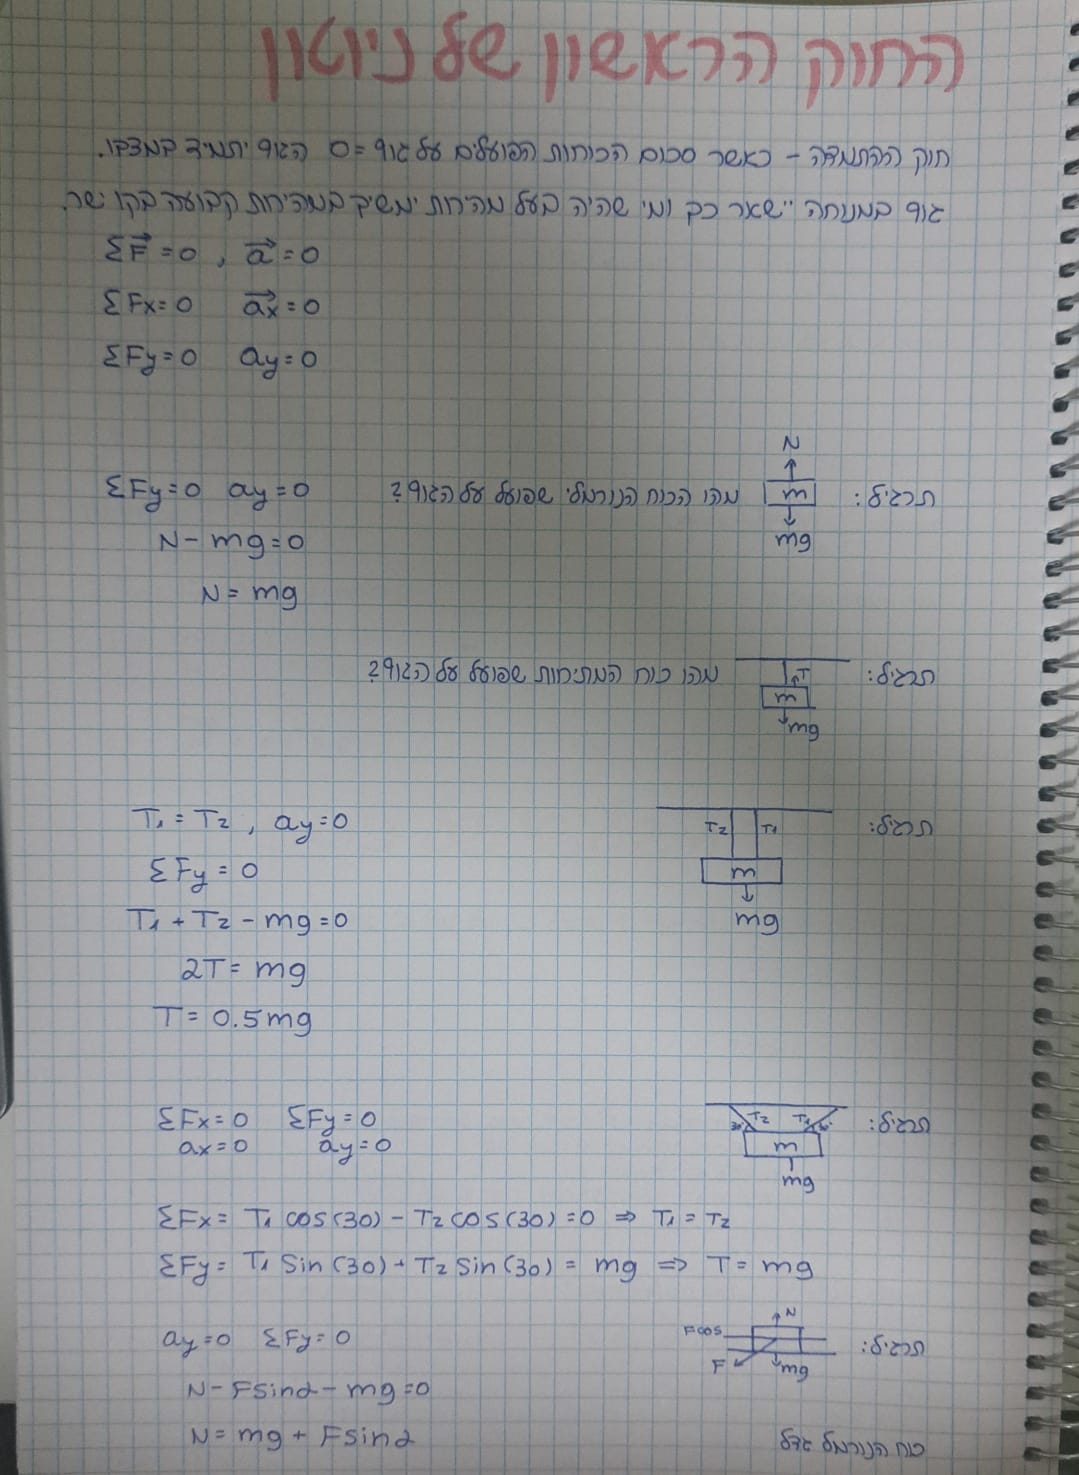 החוק הראשון של ניוטון
חוק ההתמדה - כאשר סכום הכוחות הפועלים על גוף = 0 הגוף יתמיד במצבו.
גוף במנוחה יישאר כך ומי שהיה בעל מהירות ימשיך במהירות קבועה בקו ישר.
ΣF⃗ = 0 , a⃗ = 0
ΣFx = 0 a⃗x = 0
ΣFy = 0 ay = 0
תרגיל:
N
m
mg
מהו הכוח הנורמלי שפועל על הגוף?
ΣFy = 0 ay = 0
N - mg = 0
N = mg
תרגיל:
T
m
mg
מהו כוח המתיחות שפועל על הגוף?
תרגיל:
T2 T1
m
mg
T1 = T2 , ay = 0
ΣFy = 0
T1 + T2 - mg = 0
2T = mg
T = 0.5mg
תרגיל:
T2 T1
m
mg
ΣFx = 0 ΣFy = 0
ax = 0 ay = 0
ΣFx = T1 cos(30) - T2 cos(30) = 0 ⇒ T1 = T2
ΣFy = T1 Sin(30) + T2 Sin(30) = mg ⇒ T = mg
תרגיל:
N
Fcos
F
mg
ay = 0 ΣFy = 0
N - Fsinα - mg = 0
N = mg + Fsinα
כוח הנורמל גדל